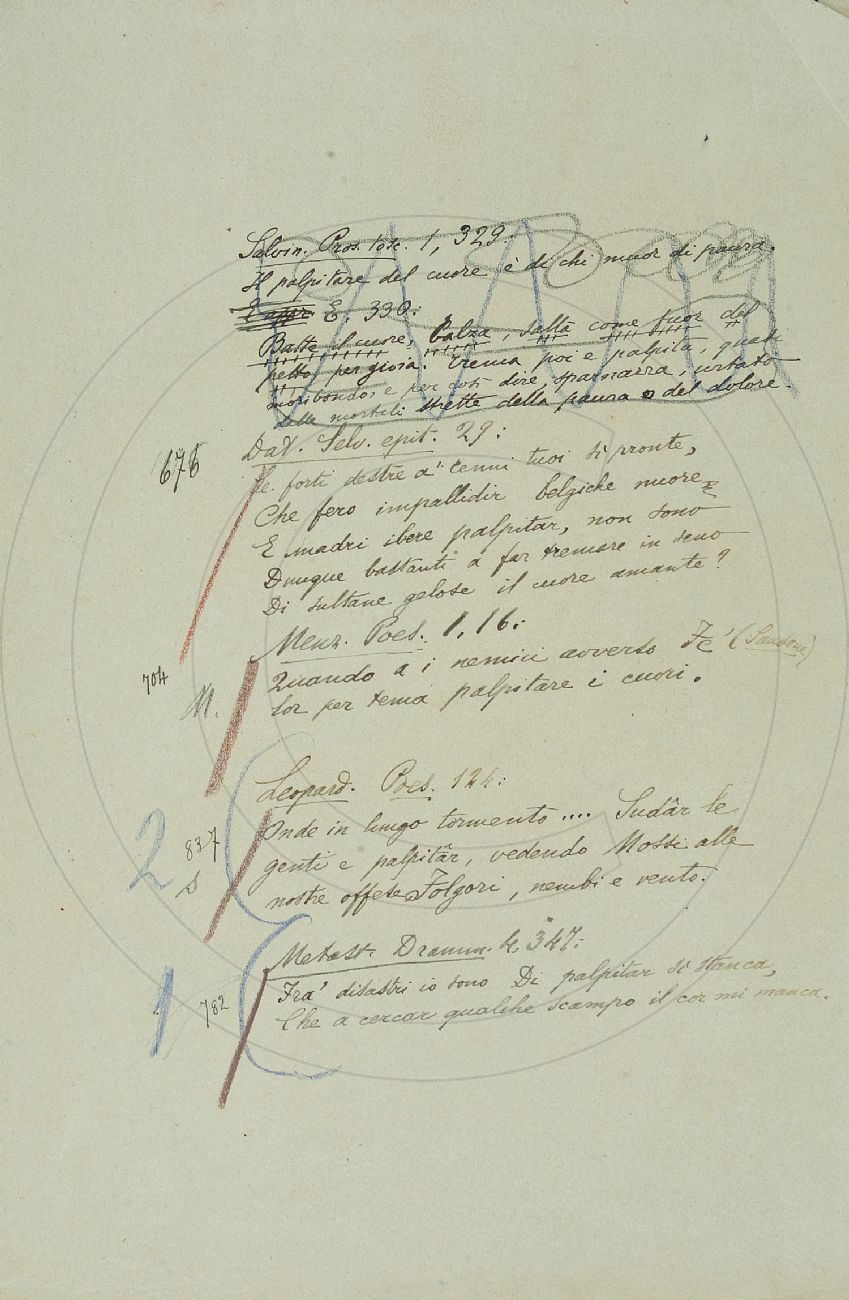 Salvin. Pros. tosc. 1, 329:
Il palpitare del cuore è di chi muor di paura.
E appr E. 330:
Batte il cuore, balza, salta come fuor del
petto per gioia. Trema poi e palpita, quasi
moribondo, e per così dire, sparnazza, urtato
dalle mortali strette della paura o del dolore.
676
Dat. Selv. epit. 29:
Le forti destre a' cenni tuoi sì pronte,
Che fero impallidir belgiche nuore
E madri ibere palpitar, non sono
Dunque bastanti a far tremare in seno
Di sultane gelose il cuore amante?
704
M.
Menz. Poes. 1, 16:
Quando a i nemici avverso Fe' (Sansone)
Lor per tema palpitare i cuori.
2
837
s
Leopard. Poes. 124:
Onde in lungo tormento .... Sudâr le
genti e palpitâr, vedendo Mossi alle
nostre offese Folgori, nembi e vento.
1
782
Metast. Dramm. 4, 347:
Fra' disastri io sono Di palpitar sì stanca,
Che a cercar qualche scampo il cor mi manca.